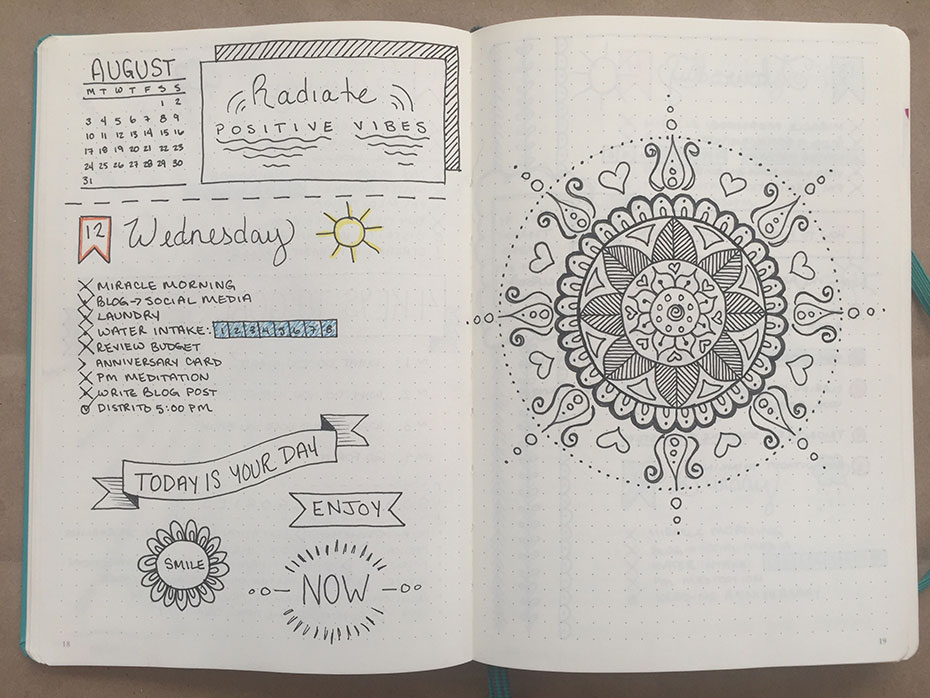 AUGUST
M T W T F S S
1 2
3 4 5 6 7 8 9
10 11 12 13 14 15 16
17 18 19 20 21 22 23
24 25 26 27 28 29 30
31
Radiate
POSITIVE VIBES
12 Wednesday
MIRACLE MORNING
BLOG → SOCIAL MEDIA
LAUNDRY
WATER INTAKE: 1 2 3 4 5 6 7 8
REVIEW BUDGET
> ANNIVERSARY CARD
PM MEDITATION
WRITE BLOG POST
DISTRITO 5:00 PM
TODAY IS YOUR DAY
ENJOY
SMILE
NOW
18
19